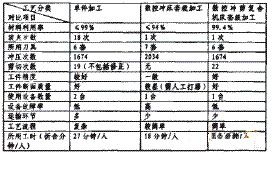 工艺分类 单件加工 数控冲床套裁加工 数控冲剪复合机床套裁加工
对比项目
材料利用率 ≤99% ≤94% 99.4%
装夹次数 18次 1次 1次
所用刀具 6套 7套 6套
冲压次数 1674 2034 1674
剪切次数 19(不包括修正) 无 22
工件精度 较好 一般 好
工件断面质量 好 较差(需人工打磨) 好
使用设备数量 2台 1台 1台
设备故障率 低 高 低
运输环节 多 少 少
工艺流程 复杂 较简单 简单
所用工时(折合分钟/人) 27分钟/人 18分钟/人